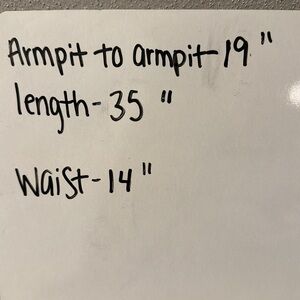 Armpit to armpit-19"
length-35"
Waist-14"